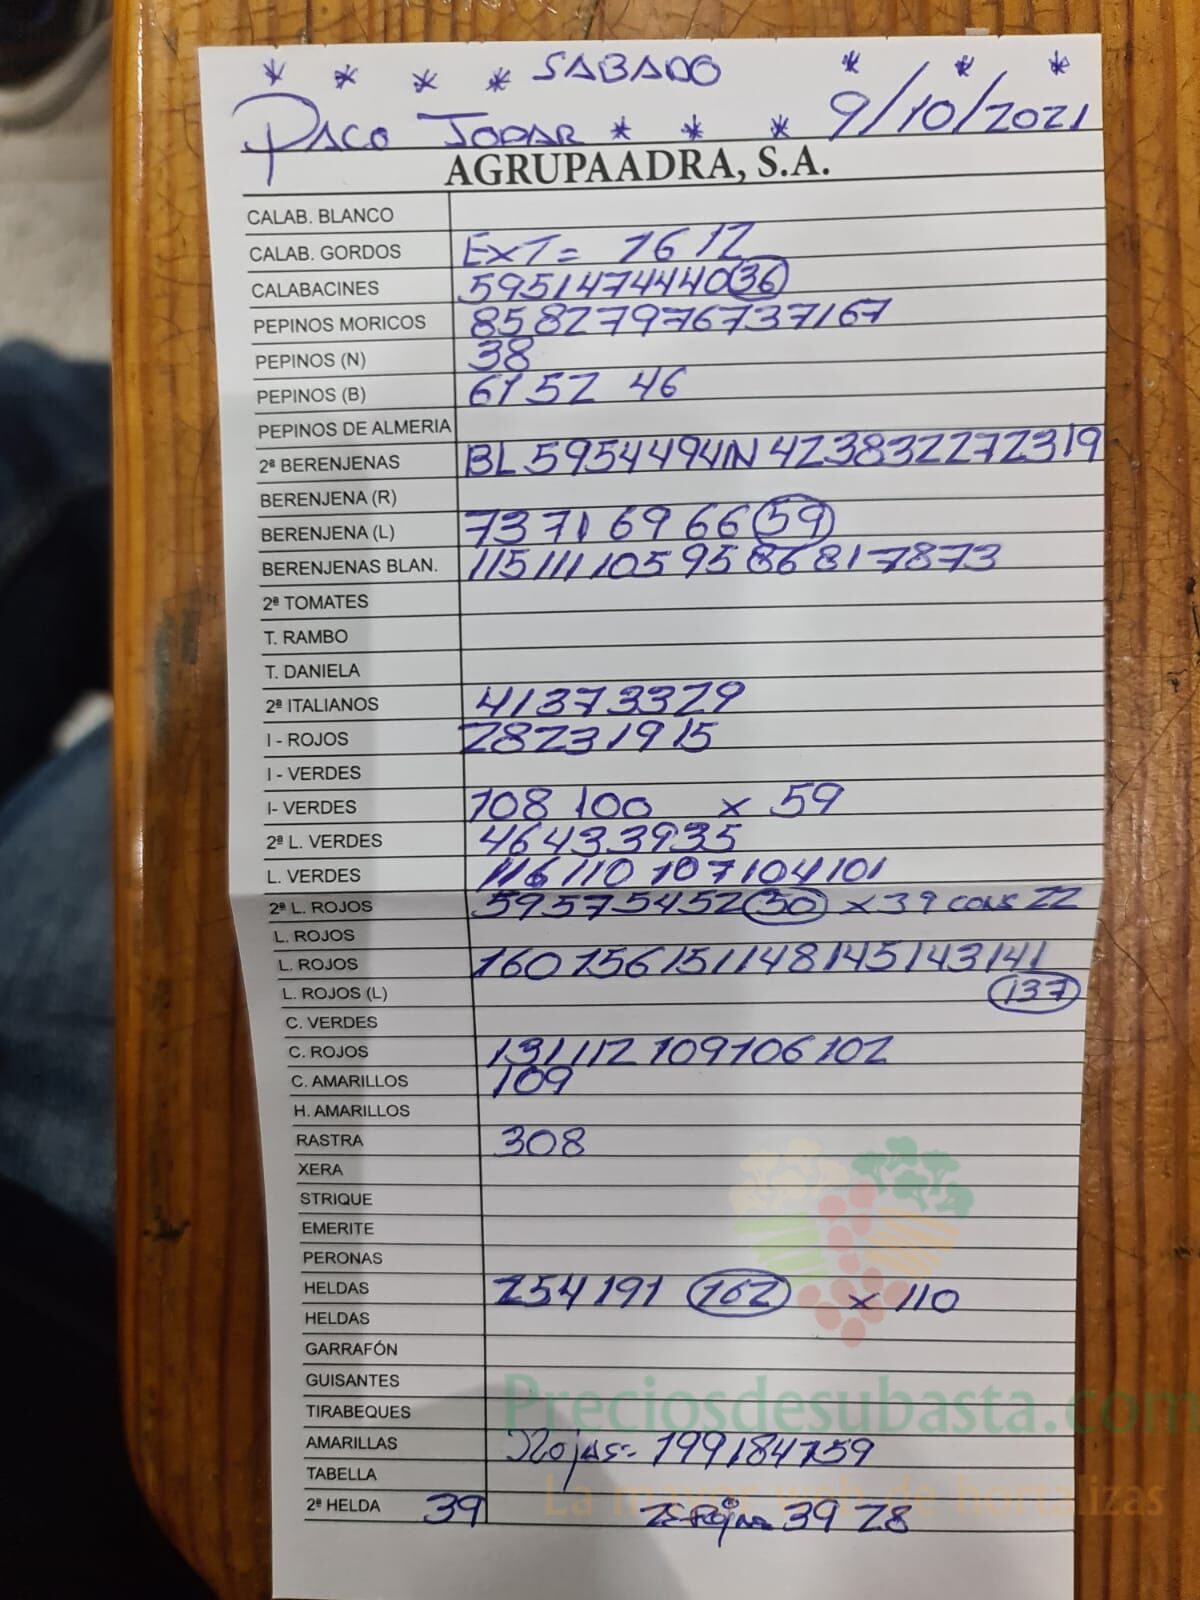 * * * * SABADO * * *
PACO JODAR * * * 9/10/2021
AGRUPAADRA, S.A.
CALAB. BLANCO
CALAB. GORDOS EXT= 16 12
CALABACINES 59 51 47 44 40 36
PEPINOS MORICOS 85 82 79 76 73 71 67
PEPINOS (N) 38
PEPINOS (B) 61 52 46
PEPINOS DE ALMERIA
2ª BERENJENAS BL 59 54 49 41 N 42 38 32 27 23 19
BERENJENA (R)
BERENJENA (L) 73 71 69 66 59
BERENJENAS BLAN. 115 111 105 95 86 81 78 73
2ª TOMATES
T. RAMBO
T. DANIELA
2ª ITALIANOS 41 37 33 29
I - ROJOS 28 23 19 15
I - VERDES
I- VERDES 108 100 x 59
2ª L. VERDES 46 43 39 35
L. VERDES 116 110 107 104 101
2ª L. ROJOS 59 57 54 52 50 x 39 cons 22
L. ROJOS
L. ROJOS 160 156 151 148 145 143 141
L. ROJOS (L) 137
C. VERDES
C. ROJOS 131 112 109 106 102
C. AMARILLOS 109
H. AMARILLOS
RASTRA 308
XERA
STRIQUE
EMERITE
PERONAS
HELDAS 254 191 162 x 110
HELDAS
GARRAFÓN
GUISANTES
Preciosdesubasta.com
TIRABEQUES
AMARILLAS Rojas= 199 184 159
TABELLA
La mayor web de hortalizas
2ª HELDA 39 39 28